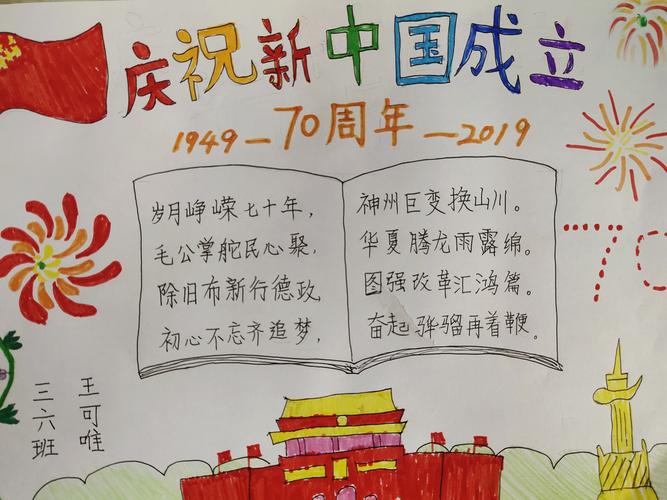 庆祝新中国成立
1949—70周年—2019
岁月峥嵘七十年,
毛公掌舵民心聚,
除旧布新行德政
初心不忘齐追梦,
神州巨变换山川。
华夏腾龙雨露绵。
图强改革汇鸿篇。
奋起骅骝再着鞭。
70
王可唯
三六班